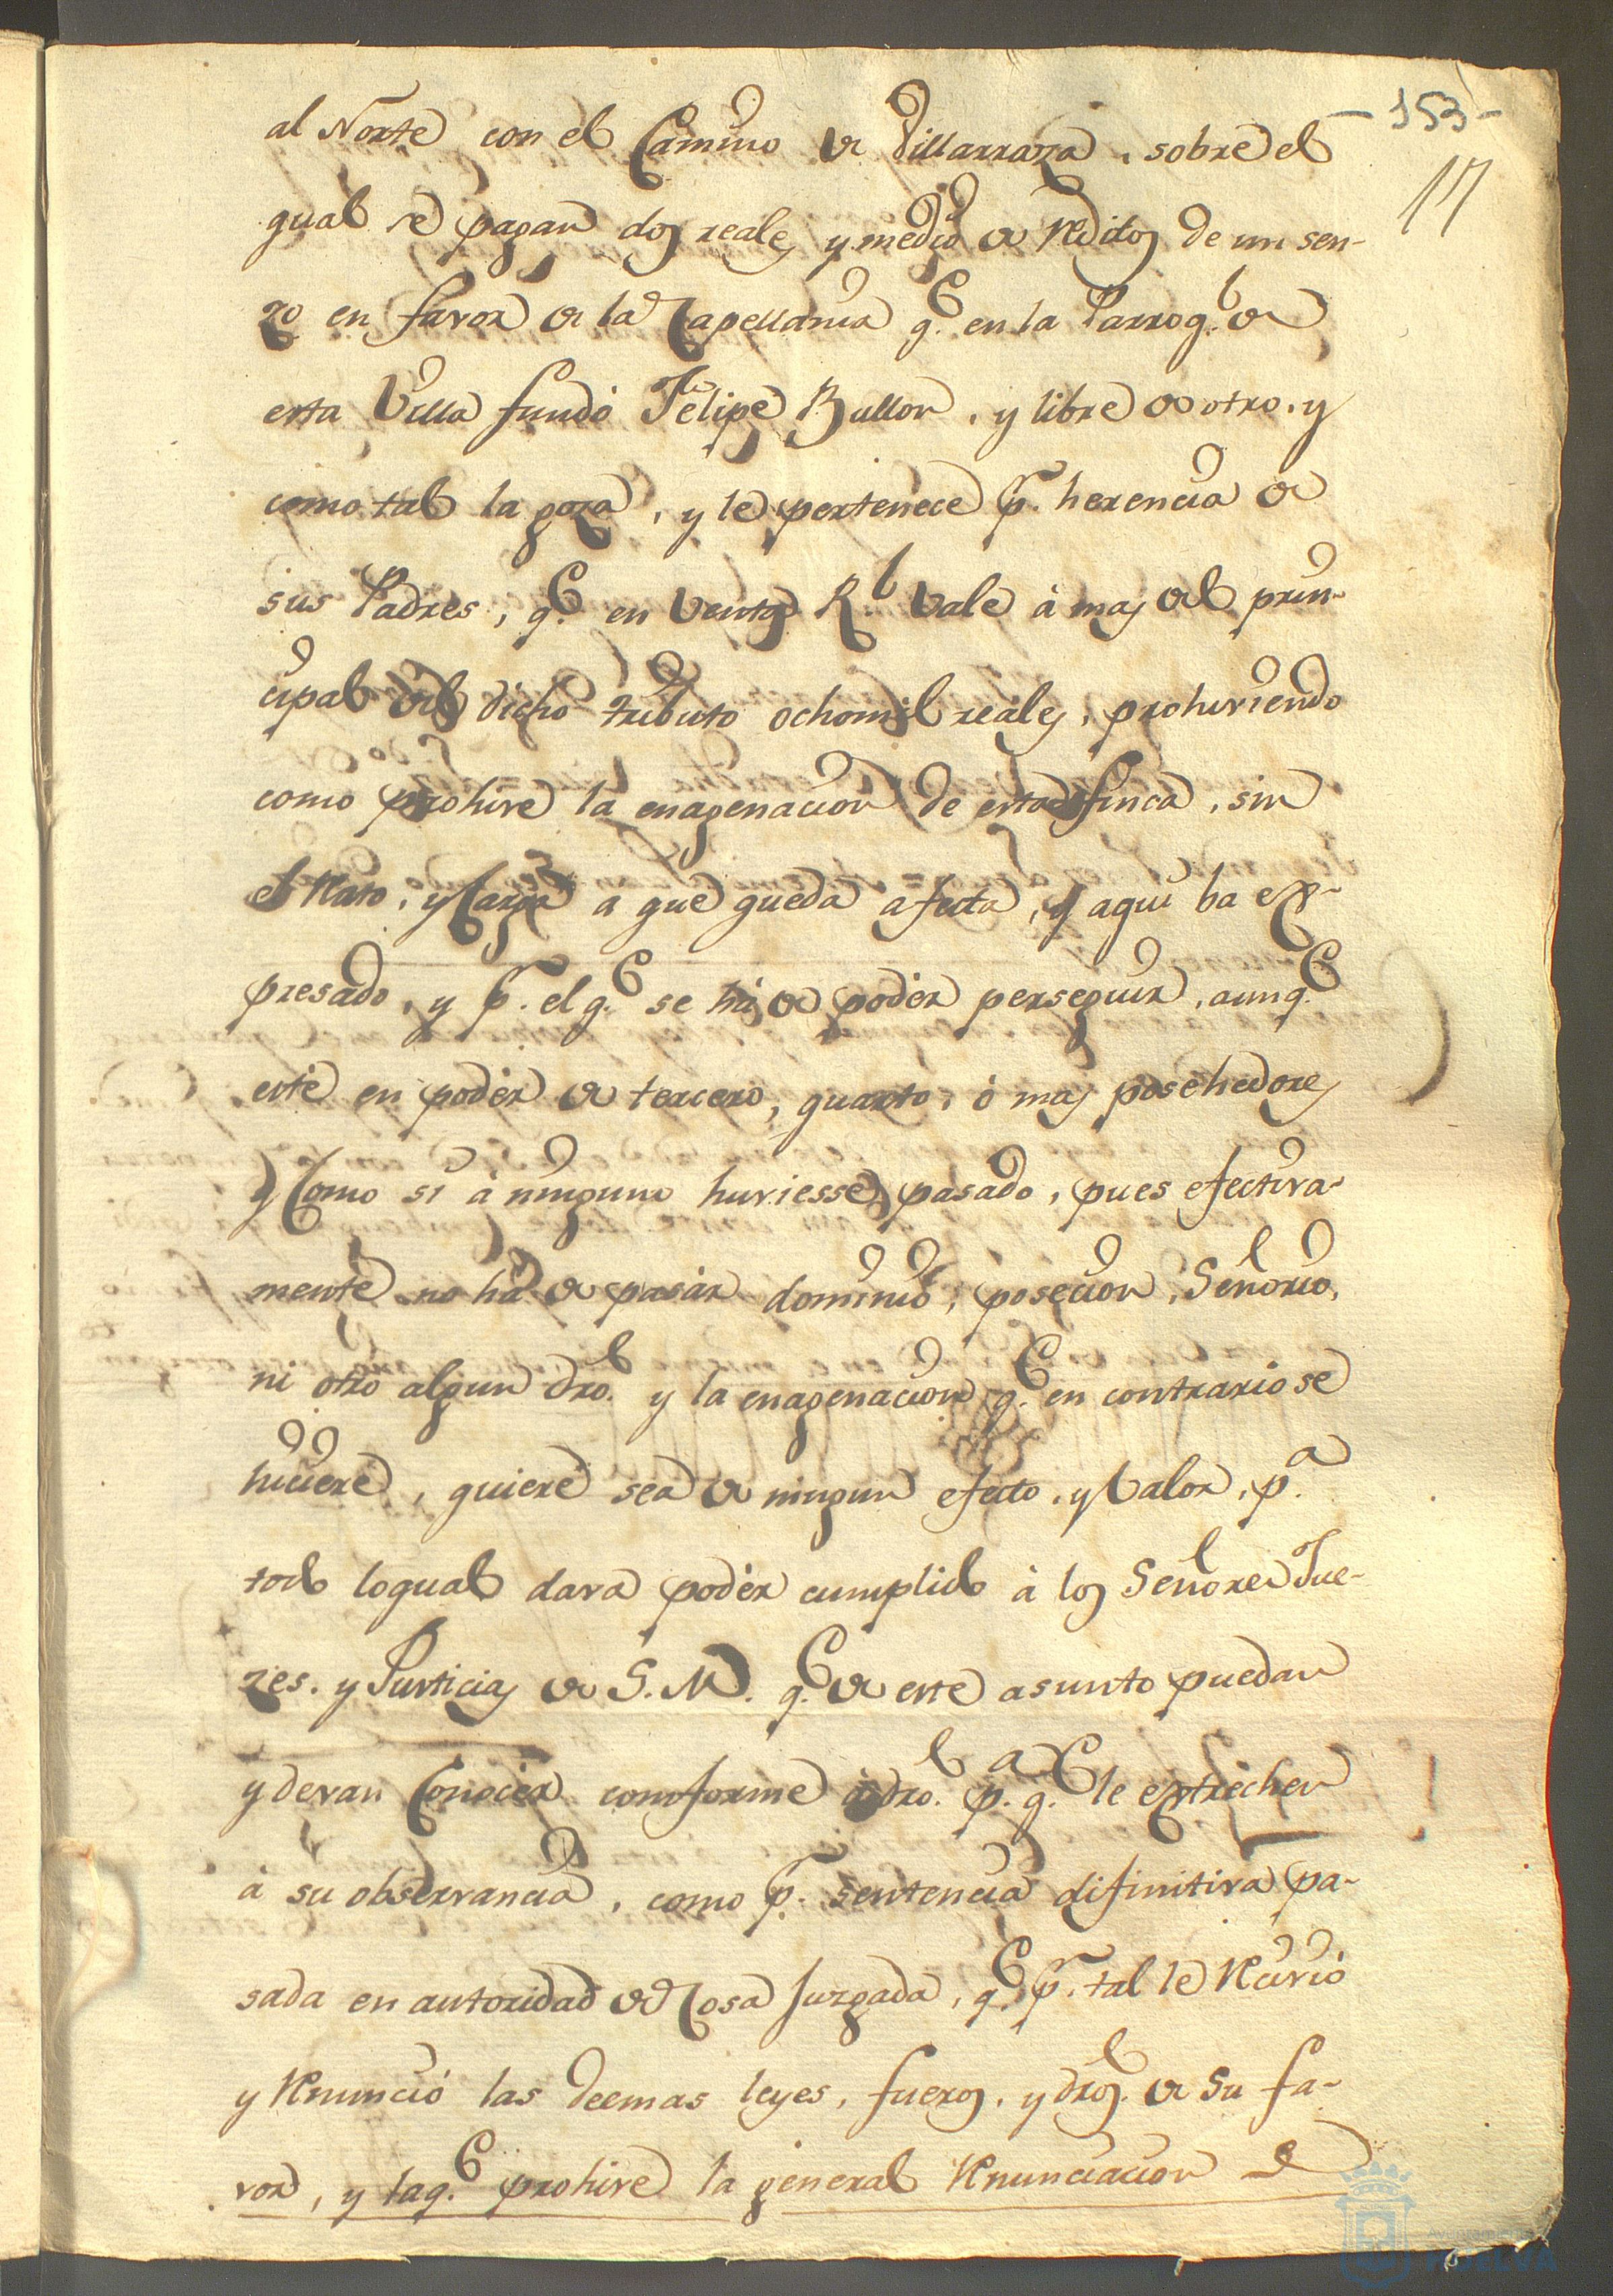 - 153 -
17
al Norte con el Camino de Villarraza, sobre el
qual se pagan dos reales y medio de reditos de un sen-
zo en favor de la Capellania q.e en la Parroq.l de
esta Villa fundó Felipe Bullon, y libre de otro, y
como tal la goza, y le pertenece p.r herencia de
sus Padres, q.e en venta R.l vale à mas del prin-
cipal del dicho tributo ochomil reales, prohiviendo
como prohive la enagenacion de esta finca, sin
el reato, y Carga a que queda afecta, y aqui ba ex-
presado, y p.r el q.e se hà de podèr perseguir, aunq.e
esté en podèr de tercero, quarto, ò mas posehedores
y Como si à ninguno huviesse pasado, pues efectiva-
mente no hà de pasàr dominio, posecion, Señorio,
ni otro algun dro. y la enagenacion q.e en contrario se
hiciere, quiere sea de ningun efecto, y Valor, p.a
todo loqual dara podèr cumplido à los Señores Jue-
zes, y Justicias de S. M. q.e de este asunto puedan
y devan Conocèr comforme à dro. p.a q.e le extrechen
à su observancia, como p.r sentencia difinitiva pa-
sada en autoridad de Cosa Juzgada, q.e p.r tal le recivió
y renunció las deemas leyes, fueros, y dros. de su fa-
vor, y laq.e prohive la general renunciacion de
Ayuntamiento
HUELVA